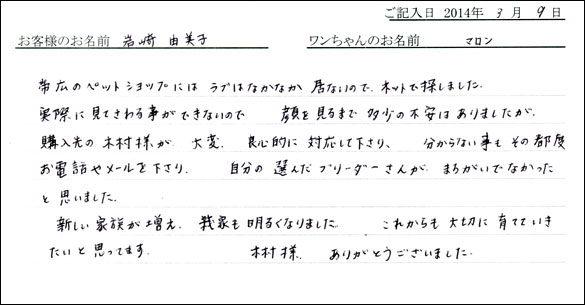 ご記入日 2014年 3月 9日
お客様のお名前 岩崎 由美子 ワンちゃんのお名前 マロン
帯広のペットショップには ラブはなかなか 居ないので、ネットで探しました。
実際に見てさわる事ができないので 顔を見るまで 多少の不安はありましたが、
購入先の木村様が 大変、良心的に 対応して下さり、 分からない事も その都度
お電話やメールを下さり、 自分の 選んだブリーダーさんが、まちがいでなかった
と思いました。
新しい家族が増え、我家も明るくなりました。 これからも 大切に 育てていき
たいと思ってます。 木村様、 ありがとうございました。